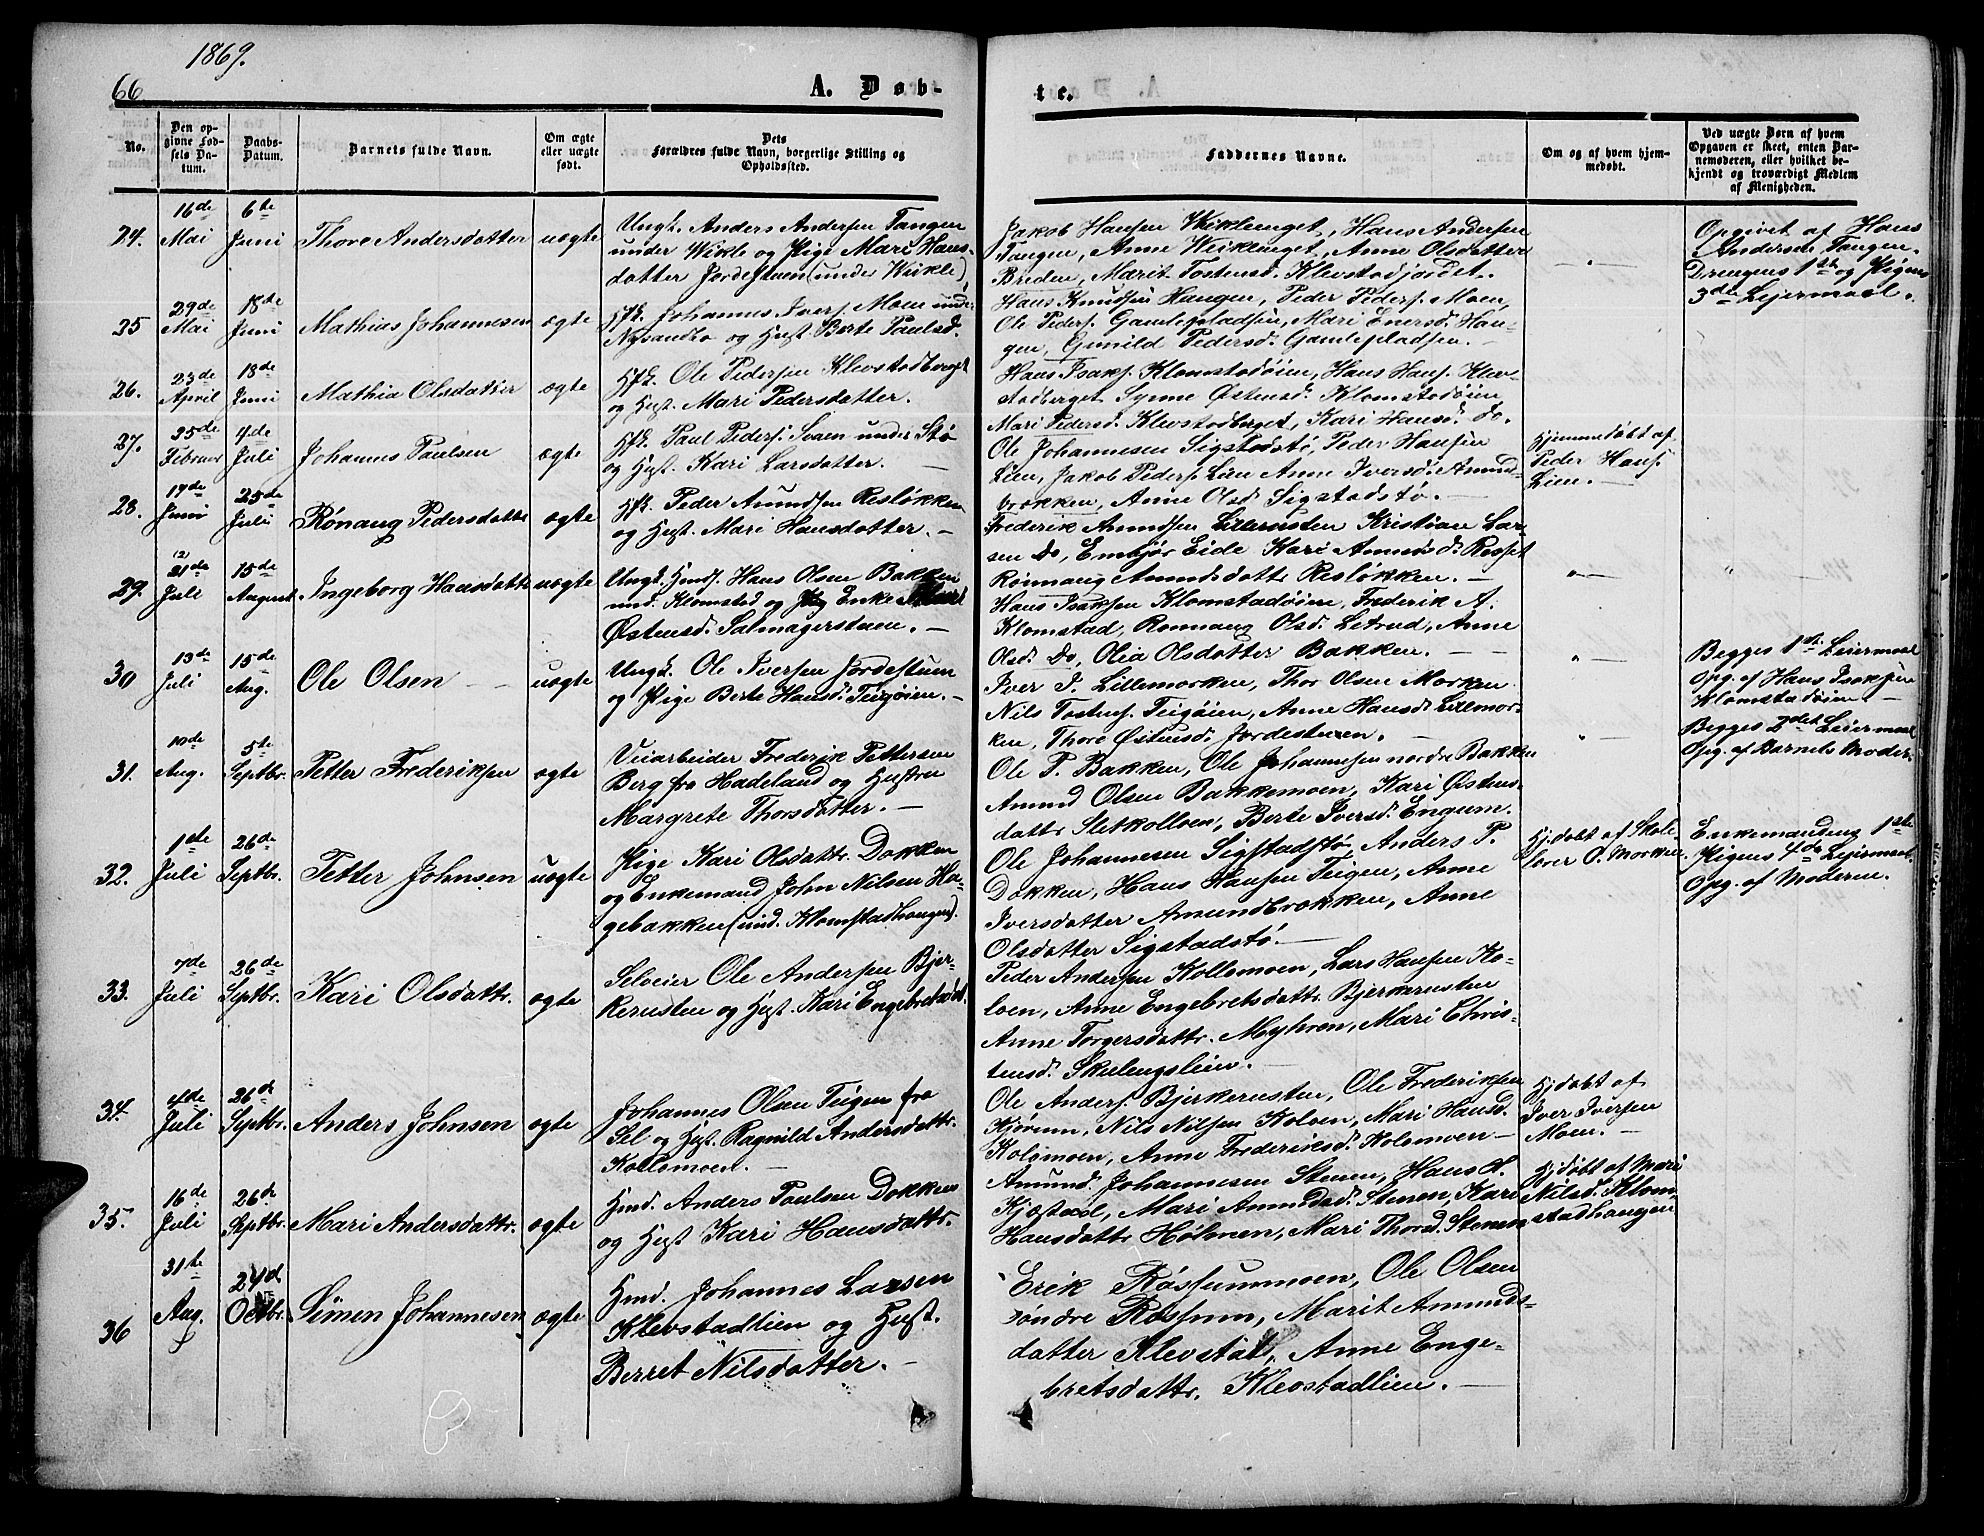 1869.
66
A. Døb-
te.
No.
Den op-
givne Fød-
sels Da-
tum.
Daabs-
Datum.
Barnets fulde Navn.
Om ægte
eller uægte
født.
Dets
Forældres fulde Navn, borgerlige Stilling og
Opholdssted.
Faddernes Navne.
Om og af hvem hjem-
medøbt.
Ved uægte Børn af hvem
Opgaven er skeet, enten Bar-
nemoderen, eller hvilket be-
kjendt og troværdigt Medlem
af Menigheden.
24. 16de Mai 6te Juni Thore Andersdatter uægte
Ungk. Anders Andersen Tangen
under Wikle og Pige Mari Hans-
datter Jordestuen (under Wikle)
Jakob Hansen Wiklenget, Hans Andersen
Tangen, Anne Wiklenget, Anne Olsdatter
Breden, Marit Tostensd. Klevstadjordet.
Opgivet af Hans
Andersen Tangen.
Drengens 1ste og Pigens
3de Leiermaal.
25 29de Mai 18de Juni Mathias Johannesen ægte
Hfd. Johannes Ivers. Moen under
Nysandbo og Hust. Berte Paulsd.
Hans Knudsen Haugen, Peder Peders. Moen,
Ole Peders. Gamlepladsen, Mari Enersd. Hau-
gen, Gunild Pedersd. Gamlepladsen.
26. 23de April 18de Juni Mathia Olsdatter ægte
Hfd. Ole Pedersen Klevstadberget
og Hust. Mari Pedersdatter.
Hans Isaks. Klomstadøien, Hans Hans. Klev-
stadberget Synne Østensd. Klomstadøien
Mari Pedersd. Klevstadberget, Kari Hansd. Do.
27. 25de Februar 4de Juli Johannes Paulsen ægte
Hfd. Paul Peders. Svaen under Stø
og Hust. Kari Larsdatter.
Ole Johannesen Sigstadstø, Peder Hansen
Lien, Jakob Peders. Lien Anne Iversd. Amund-
brokken, Anne Olsd. Sigstadstø.
Hjemmedøbt af
Peder Hans.
Lien.
28. 17de Juni 25de Juli Rønaug Pedersdatter ægte
Hfd. Peder Amundsen Resløkken
og Hust. Mari Hansdatter.
Frederik Amundsen Lillerusten Kristian Lar-
sen Do, Embjør Eide Kari Amundsd.
Rønnaug Amundsdattr Resløkken.
29. 21de Juli 15de August Ingeborg Hansdatter uægte
Ungk. Hans Olsen Bakken
und. Klomstad og Enke
Østensd. Salmagerstuen.
Hans Isaksen Klomstadøien, Frederik A.
Klomstad, Ronnaug Olsd. Letrud, Anne
Olsd. Do, Olia Olsdatter Bakken.
30 13de Juli 15de Aug. Ole Olsen uægte
Ungk. Ole Iversen Jordestuen
og Pige Berte Hansd. Teigøien.
Iver J. Lillemorken, Thor Olsen Morken
Nils Tostens. Teigøien, Anne Hansd. Lillemor-
ken, Thore Østensd. Jordestuen.
Begges 1ste Leiermaal
Opg. af Hans Isaksen
Klomstadøien
Begges 2det Leiermaal
Opg. af Barnets Moder.
31. 10de Aug. 5te Septbr. Petter Frederiksen ægte
Veiarbeider Frederik Pettersen
Berg fra Hadeland og Hustru
Margrete Thorsdatter.
Ole P. Bakken, Ole Johannesen nordre Bakken
Amund Olsen Bakkemoen, Kari Østens-
datter Sletkolloen, Berte Iversd. Engum.
32. 1de Juli 26de Septbr. Petter Johnsen uægte
Pige Kari Olsdattr. Dokken
og Enkemand John Nilsen Ha-
gebakken (und. Klomstadhaugen).
Ole Johannesen Sigstadstø, Anders P.
Dokken, Hans Hansen Teigen, Anne
Iversdatter Amundbrokken, Anne
Olsdatter Sigstadstø.
Hj.døbt af Skole-
lærer O. Morken.
Enkemandens 1ste
Pigens 4de Leiermaal.
Opg. af Moderen.
33. 7de Juli 26de Septbr. Kari Olsdattr. ægte
Selveier Ole Andersen Bjer-
kerusten og Hust. Kari Engebretsdat.
Peder Andersen Kollomoen, Lars Hansen Ko-
loen, Anne Engebretsdattr. Bjerkerusten
Anne Torgersdattr. Myhren, Mari Chris-
tensd. Skulengslien.
34. 4de Juli 26de Septbr. Anders Johnsen ægte
Johannes Olsen Teigen fra
Sel og Hust. Ragnild Andersdattr.
Kollomoen.
Ole Anders. Bjerkerusten, Ole Frederiksen
Kjørum, Nils Nilsen Koloen, Mari Hansd.
Kolomoen, Anne Frederiksd. Kolomoen
Hj.døbt af
Iver Iversen
Moen.
35. 16de Juli 26de Septbr. Mari Andersdattr. ægte
Hmd. Anders Paulsen Dokken
og Hust Kari Hansdattr.
Amund Johannesen Stenen, Hans H.
Kjæstad, Mari Amundsd. Stenen, Kari
Hansdattr Holmen, Mari Thorsd. Stenen
Hj.døbt af Mari
Nilsd. Klom-
stadhaugen
36 31te Aug. 24de Octbr. Simen Johannesen ægte
Hmd. Johannes Larsen
Klevstadlien og Hust.
Berret Nilsdatter.
Erik Røssummoen, Ole Olsen
søndre Røssum, Marit Amunds-
datter Klevstad, Anne Enge-
bretsdattr. Klevstadlien.